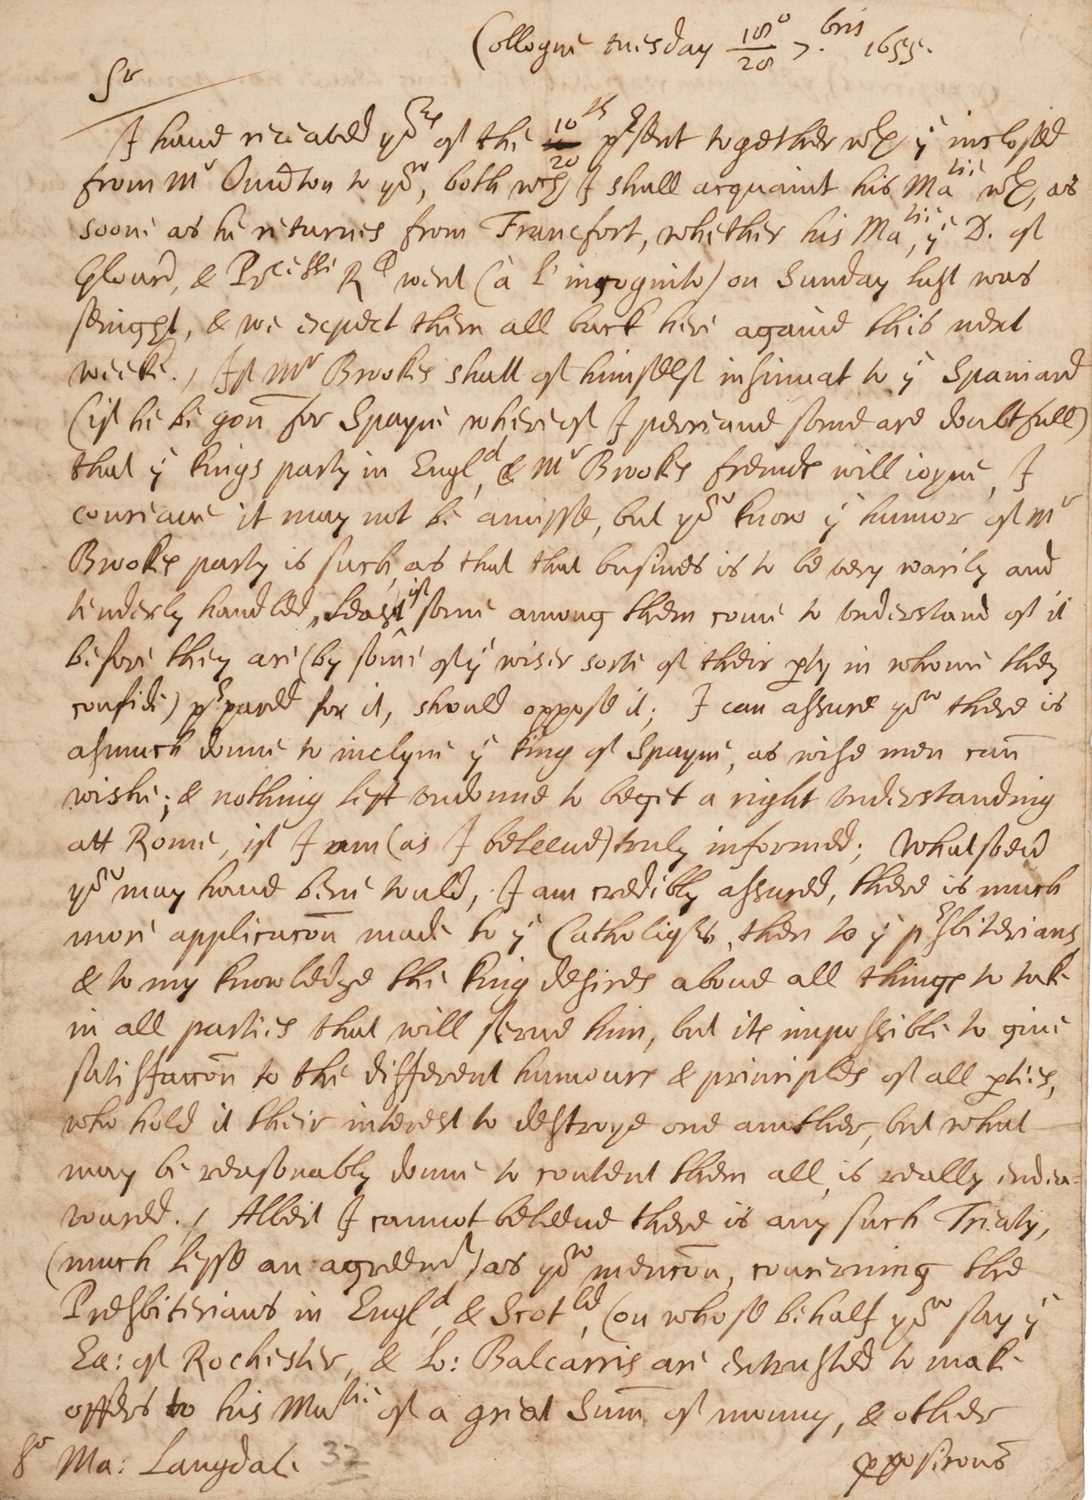 Collogne tuesday 18°/28 7.bris 1655.
Sr
I haue receaued yors of the 10/20 th pesent together wth ye inclosed
from Mr Ouerton to you, both wch I shall acquaint his Matie wth, as
soone as he returnes from Francfort, whether his Matie, ye D. of
Glourr, & Pcesse Rll went (a l'incognito) on Sunday last was
senight, & we expect them all back here againe this next
weeke./ If Mr Brookes shall of himselfe insinuat to ye Spaniard
(if he be gon for Spayne whereof I perceaue some are doubtfull)
that ye kings party in Engld, & Mr Brookes freinds will ioyne, I
conceaue it may not be amisse, but you know ye humor of Mr
Brookes party is such, as that that busines is to be very warily and
tenderly handled, least if some among them come to vnderstand of it
before they are (by some of ye wiser sorte of their pty in whome they
confide) ppared for it, should oppose it; I can assure you there is
asmuch donne to inclyne ye king of Spayne, as wise men can
wishe; & nothing left vndonne to beget a right vnderstanding
att Rome, if I am (as I beleeue) truly informed; Whatsoeu
you may haue bene tould, I am credibly assured, there is much
more applicacon made to ye Catholiqs, then to ye psbiterians,
& to my knowledge the king desires aboue all things to take
in all parties that will serue him, but its impossible to giue
satisfaccon to the different humours & principles of all pties,
who hold it their interest to destroye one another, but what
may be reasonably donne to content them all, is really endea=
voured./ Albeit I cannot beleeue there is any such Treaty,
(much lesse an agreemt) as you mencon, concerning the
Presbiterians in Engld, & Scotld, (on whose behalf you say ye
Ea: of Rochester, & Lo: Balcarris are entrusted to make
offers to his Matie of a great Sum of monny, & other
Sr Ma: Langdale 32 ppositions